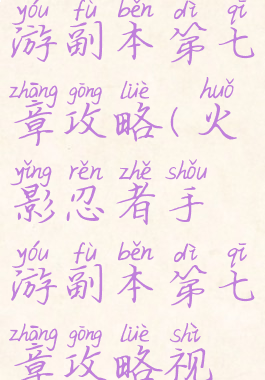 yóu fù běn dì qī
游副本第七
zhāng gōng lüè huǒ
章攻略(火
yǐng rěn zhě shǒu
影忍者手
yóu fù běn dì qī
游副本第七
zhāng gōng lüè shì
章攻略视